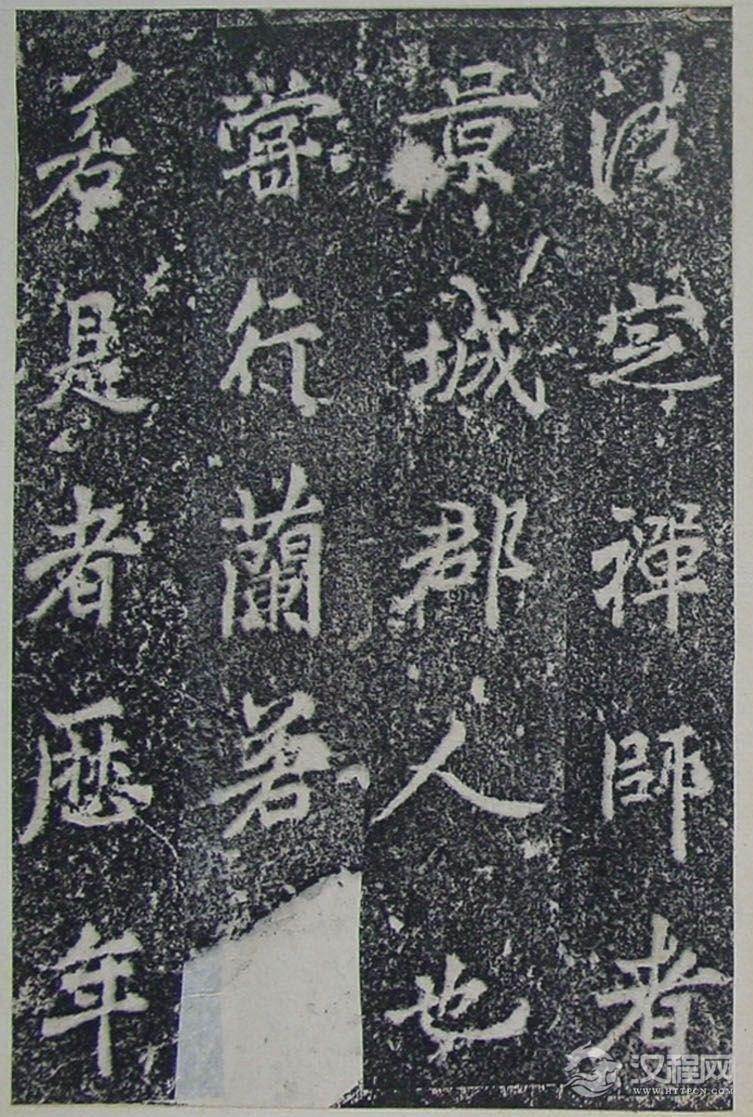 法定禪師者
景城郡人也
嘗行蘭若
若是者歷年
汉程网
WWW.HTTPCN.COM